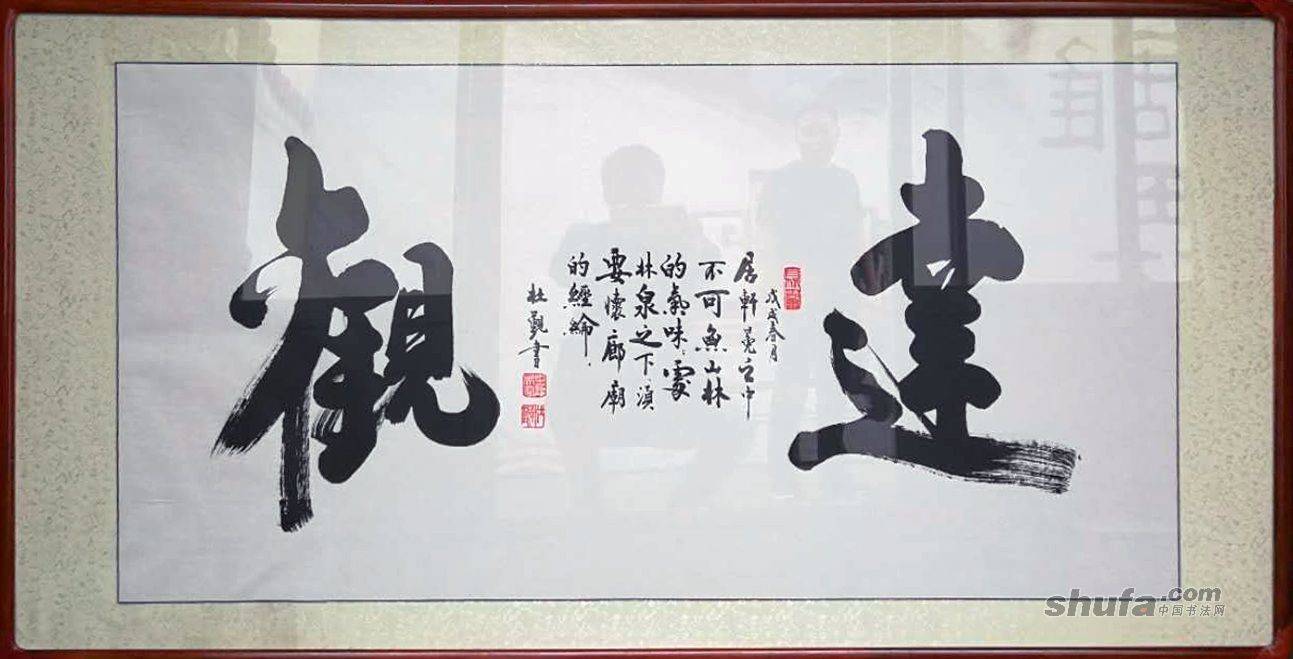 達
觀
戊戌春月
居軒冕之中
不可無山林
的氣味，處
林泉之下，須
要懷廊廟
的經綸。
杜 書
shufa.com
中国书法网